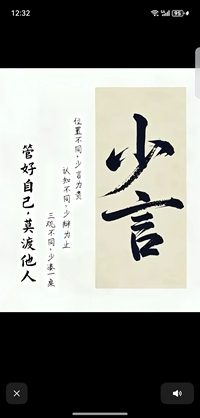 12:32
95
少言
位置不同,少言为贵
认知不同,少辩为止
三观不同,少凑一桌
管好自己,莫渡他人